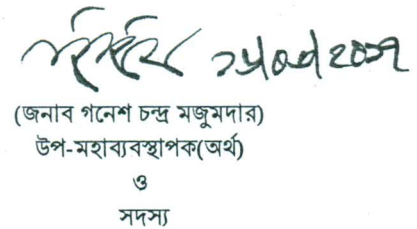 (জনাব গনেশ চন্দ্র মজুমদার)
উপ-মহাব্যবস্থাপক(অর্থ)
ও
সদস্য